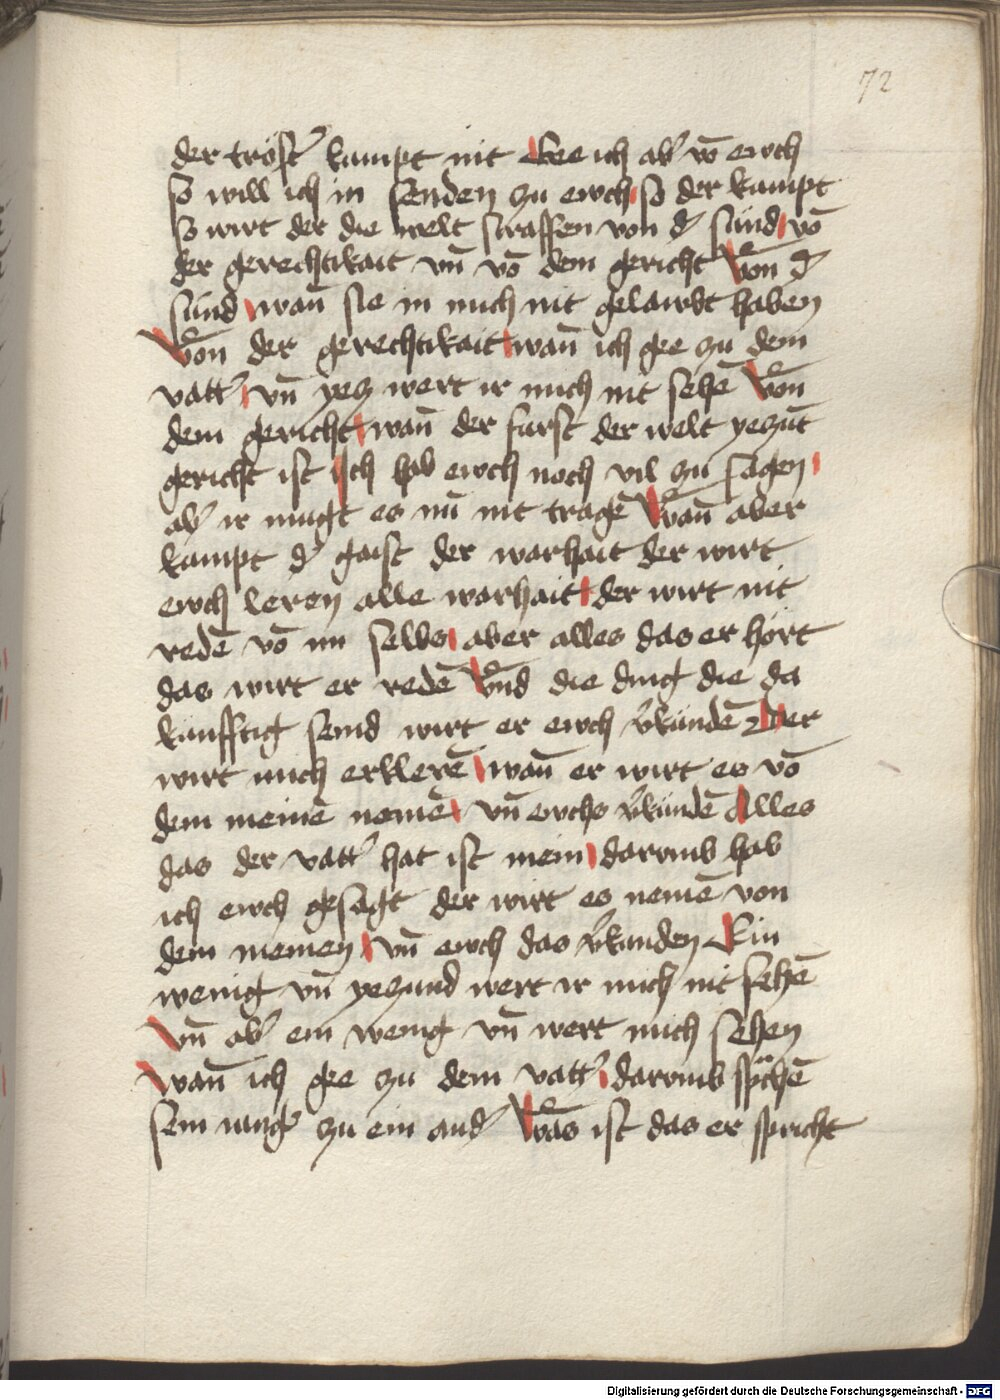 72
der tröst̄ kumpt nit Gee ich ab̄ vō ewch
so will ich in senden zu ewch so der kumpt
so wirt der die welt straffen von d̄ sünd vō
der gerechtikait vn̄ vō dem gericht Von d̄
sünd wan̄ sie in mich nit gelawbt haben
Von der gerechtikait wan̄ ich gee zu dem
vatt̄ vn̄ yetz wert ir mich nit sehē Von
dem gericht wan̄ der fürst der welt yeczūt
gericht ist Ich hab ewch noch vil zu sagen
ab̄ ir mugt es nū nit tragē Wan̄ aber
kumpt d̄ gaist der warhait der wirt
ewch leren alle warhait der wirt nit
redē vō im selbs aber alles das er hört
das wirt er redē Vnd die ding die da
künfftig seind wirt er ewch v̄kündē Der
wirt mich erklerē wan̄ er wirt es vō
dem meinē nemē vn̄ ewchs v̄kündē Alles
das der vatt̄ hat ist mein darvmb hab
ich ewch gesagt der wirt es nemē von
dem meinen vn̄ ewch das v̄kunden Ein
wenig vn̄ yeczund wert ir mich nit sehē
Vn̄ ab̄ ein wenig vn̄ wert mich sehen
Wan̄ ich gee zu dem vatt̄ darvmb sp̄chē
sein iunḡ zu ein and̄ Was ist das er spricht
Digitalisierung gefördert durch die Deutsche Forschungsgemeinschaft - DFG